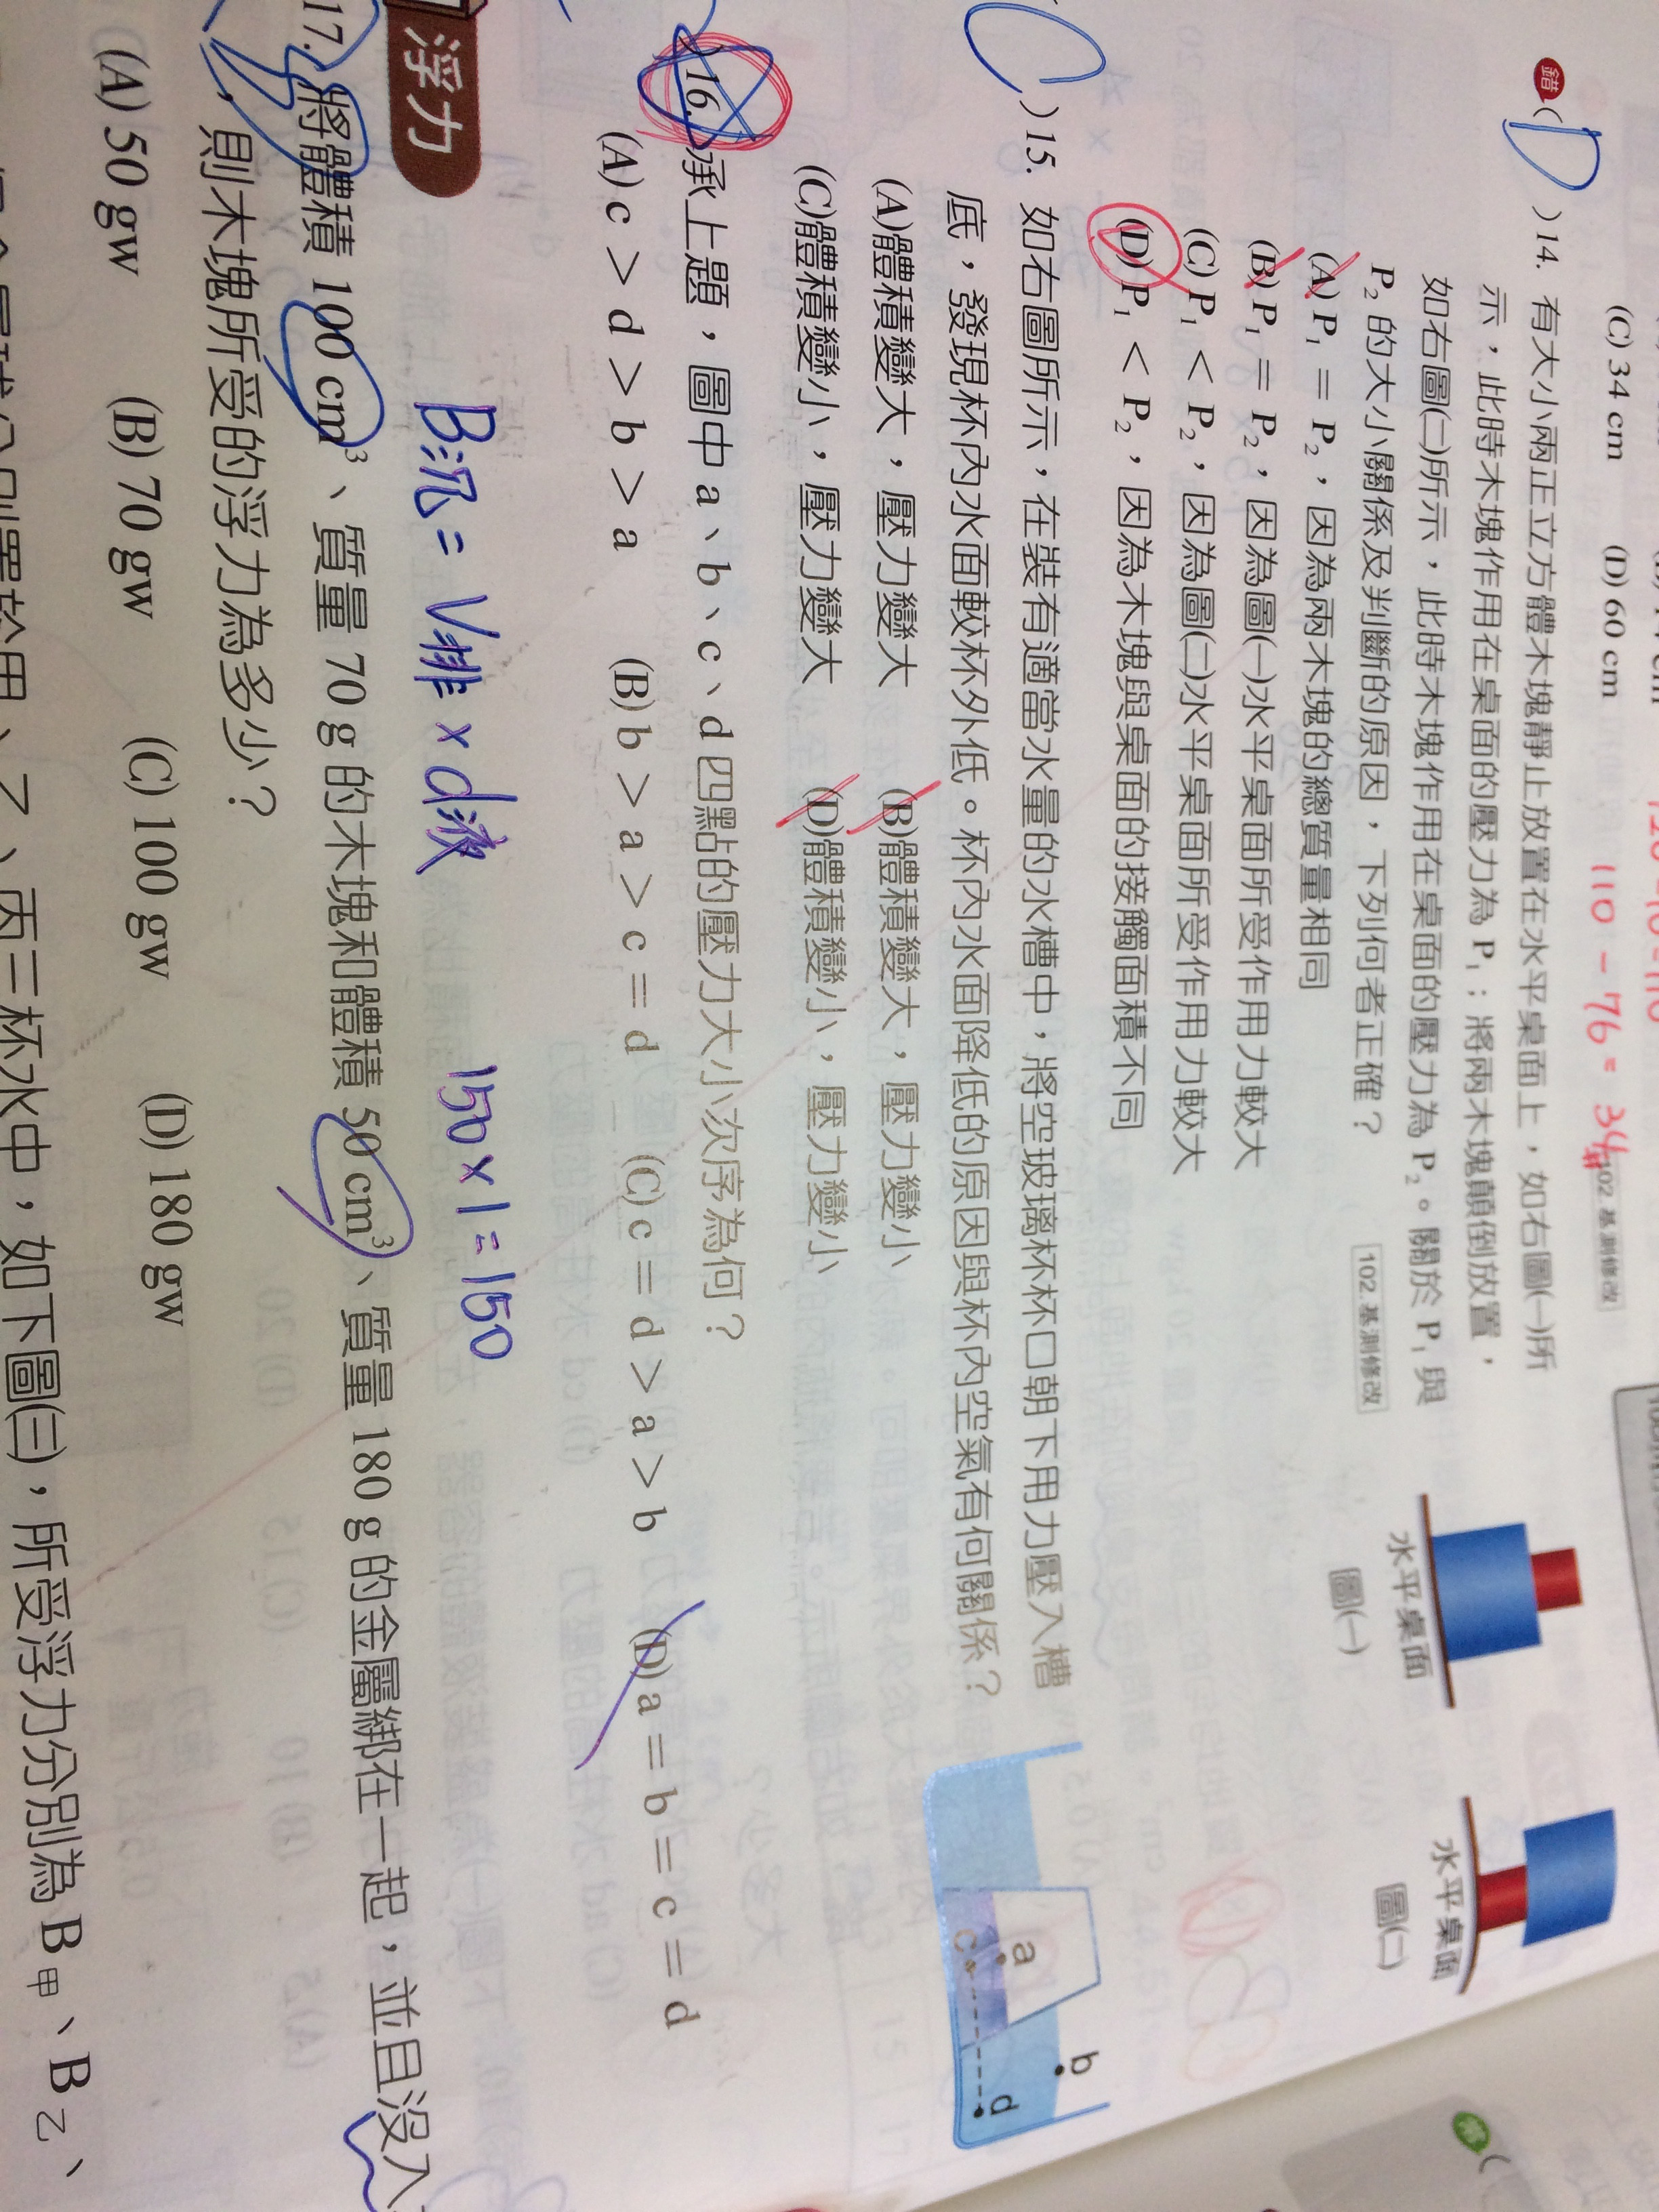 (C) 34 cm (D) 60 cm
110 - 76 = 34
102.基測修改
錯 ( D ) 14. 有大小兩正立方體木塊靜止放置在水平桌面上，如右圖(一)所
示，此時木塊作用在桌面的壓力為 P₁；將兩木塊顛倒放置，
如右圖(二)所示，此時木塊作用在桌面的壓力為 P₂。關於 P₁ 與
P₂ 的大小關係及判斷的原因，下列何者正確？ 102.基測修改
(A) P₁ = P₂，因為兩木塊的總質量相同
(B) P₁ = P₂，因為圖(一)水平桌面所受作用力較大
(C) P₁ < P₂，因為圖(二)水平桌面所受作用力較大
(D) P₁ < P₂，因為木塊與桌面的接觸面積不同
水平桌面
圖(一)
水平桌面
圖(二)
( C ) 15. 如右圖所示，在裝有適當水量的水槽中，將空玻璃杯杯口朝下用力壓入槽
底，發現杯內水面較杯外低。杯內水面降低的原因與杯內空氣有何關係？
(A)體積變大，壓力變大 (B)體積變大，壓力變小
(C)體積變小，壓力變大 (D)體積變小，壓力變小
a
b
c
d
) 16. 承上題，圖中 a、b、c、d 四點的壓力大小次序為何？
(A) c > d > b > a (B) b > a > c = d (C) c = d > a > b (D) a = b = c = d
浮力
B沉 = V排 × d液 150 × 1 = 150
17. 將體積 100 cm³、質量 70 g 的木塊和體積 50 cm³、質量 180 g 的金屬綁在一起，並且沒入
，則木塊所受的浮力為多少？
(A) 50 gw (B) 70 gw (C) 100 gw (D) 180 gw
丙三杯水中，如下圖(三)，所受浮力分別為 B甲、B乙、